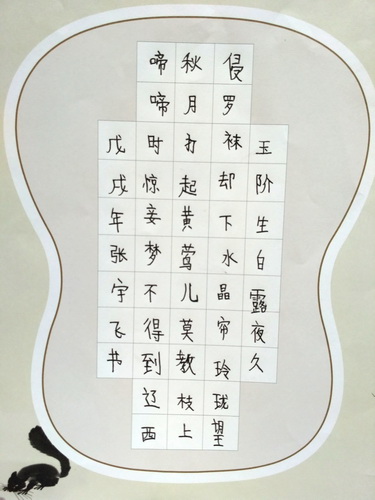 玉阶生白露夜久
侵罗袜却下水晶帘玲珑望
秋月打起黄莺儿莫教枝上
啼啼时惊妾梦不得到辽西
戊戌年张宇飞书